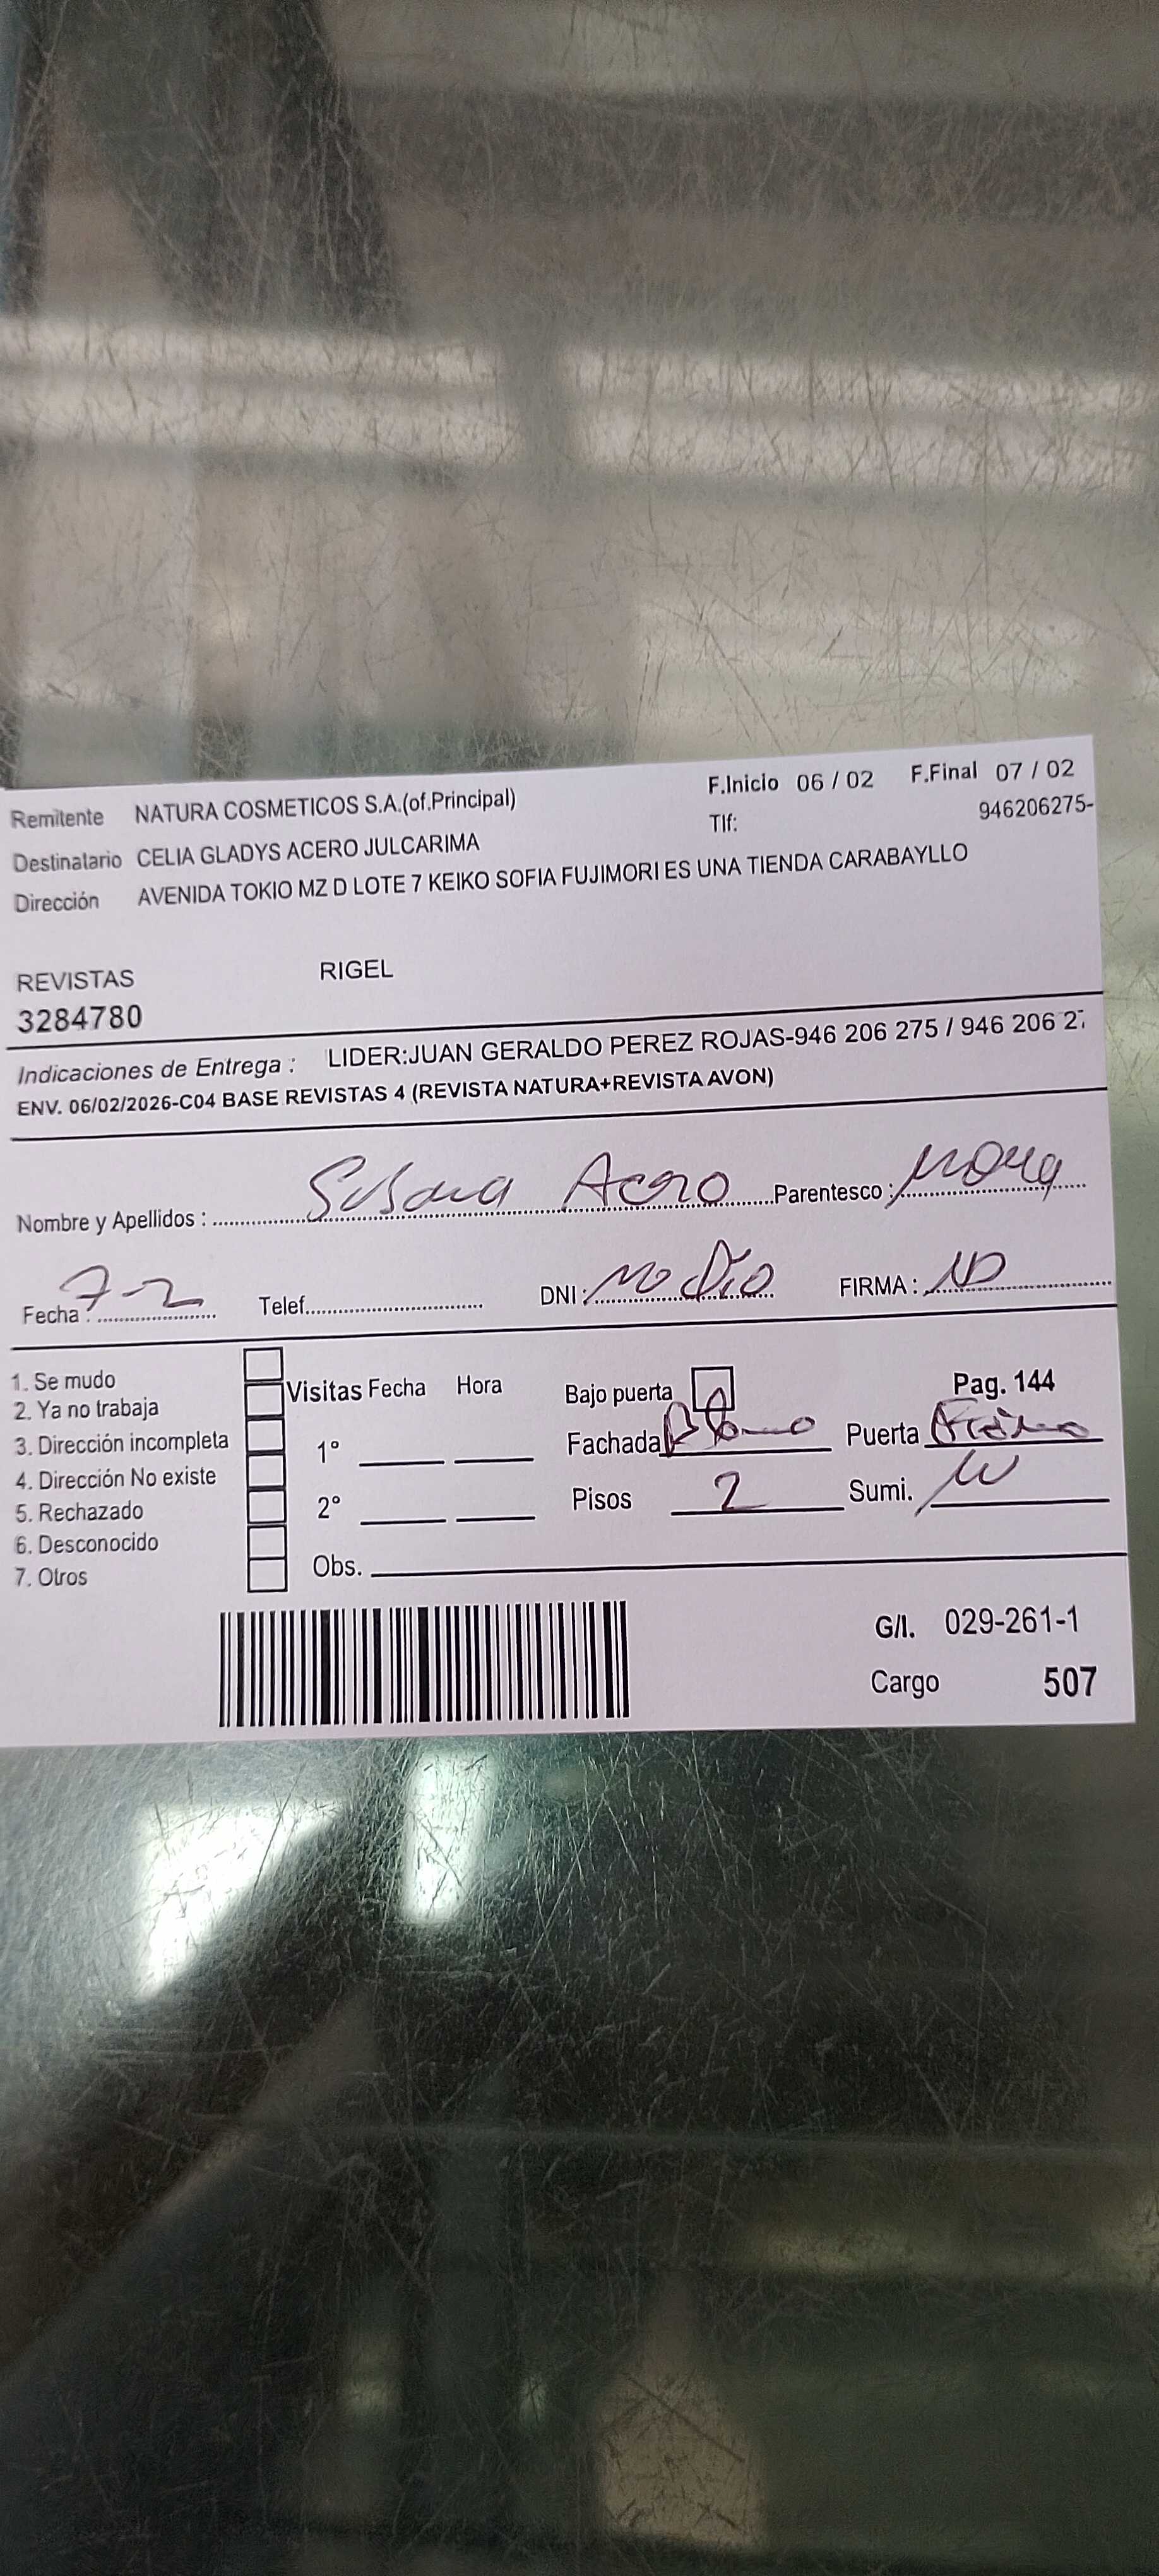 Remitente NATURA COSMETICOS S.A.(of.Principal) F.Inicio 06 / 02 F.Final 07 / 02
Tlf: 946206275-
Destinatario CELIA GLADYS ACERO JULCARIMA
Dirección AVENIDA TOKIO MZ D LOTE 7 KEIKO SOFIA FUJIMORI ES UNA TIENDA CARABAYLLO
REVISTAS RIGEL
3284780
Indicaciones de Entrega : LIDER:JUAN GERALDO PEREZ ROJAS-946 206 275 / 946 206 27
ENV. 06/02/2026-C04 BASE REVISTAS 4 (REVISTA NATURA+REVISTA AVON)
Nombre y Apellidos : Susana Acero Parentesco :
Fecha : 7-2 Telef. DNI : No Dio FIRMA : ND
1. Se mudo
2. Ya no trabaja
3. Dirección incompleta
4. Dirección No existe
5. Rechazado
6. Desconocido
7. Otros
Visitas Fecha Hora
1º
2º
Obs.
Bajo puerta Pag. 144
Fachada Puerta
Pisos 2 Sumi.
G/I. 029-261-1
Cargo 507